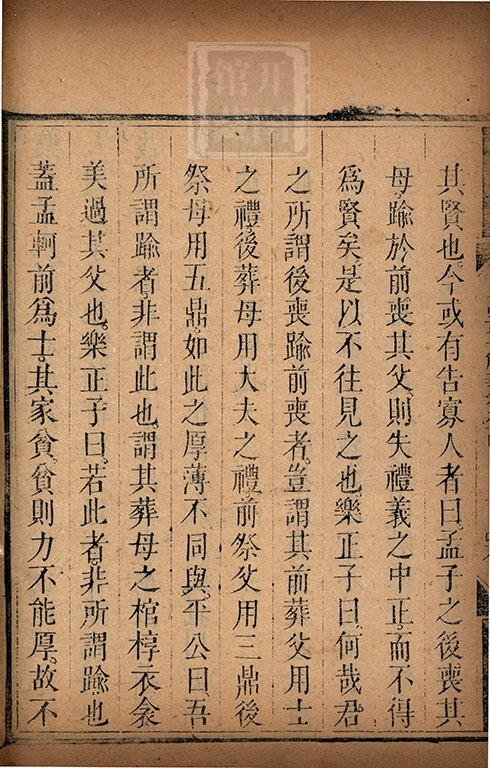 其賢也今或有告寡人者曰孟子之後喪其
母踰於前喪其父則失禮義之中正而不得
爲賢矣是以不往見之也樂正子曰何哉君
之所謂後喪踰前喪者豈謂其前葬父用士
之禮後葬母用大夫之禮前祭父用三鼎後
祭母用五鼎如此之厚薄不同與平公曰吾
所謂踰者非謂此也謂其葬母之棺椁衣衾
美過其父也樂正子曰若此者非所謂踰也
蓋孟軻前爲士其家貧貧則力不能厚故不